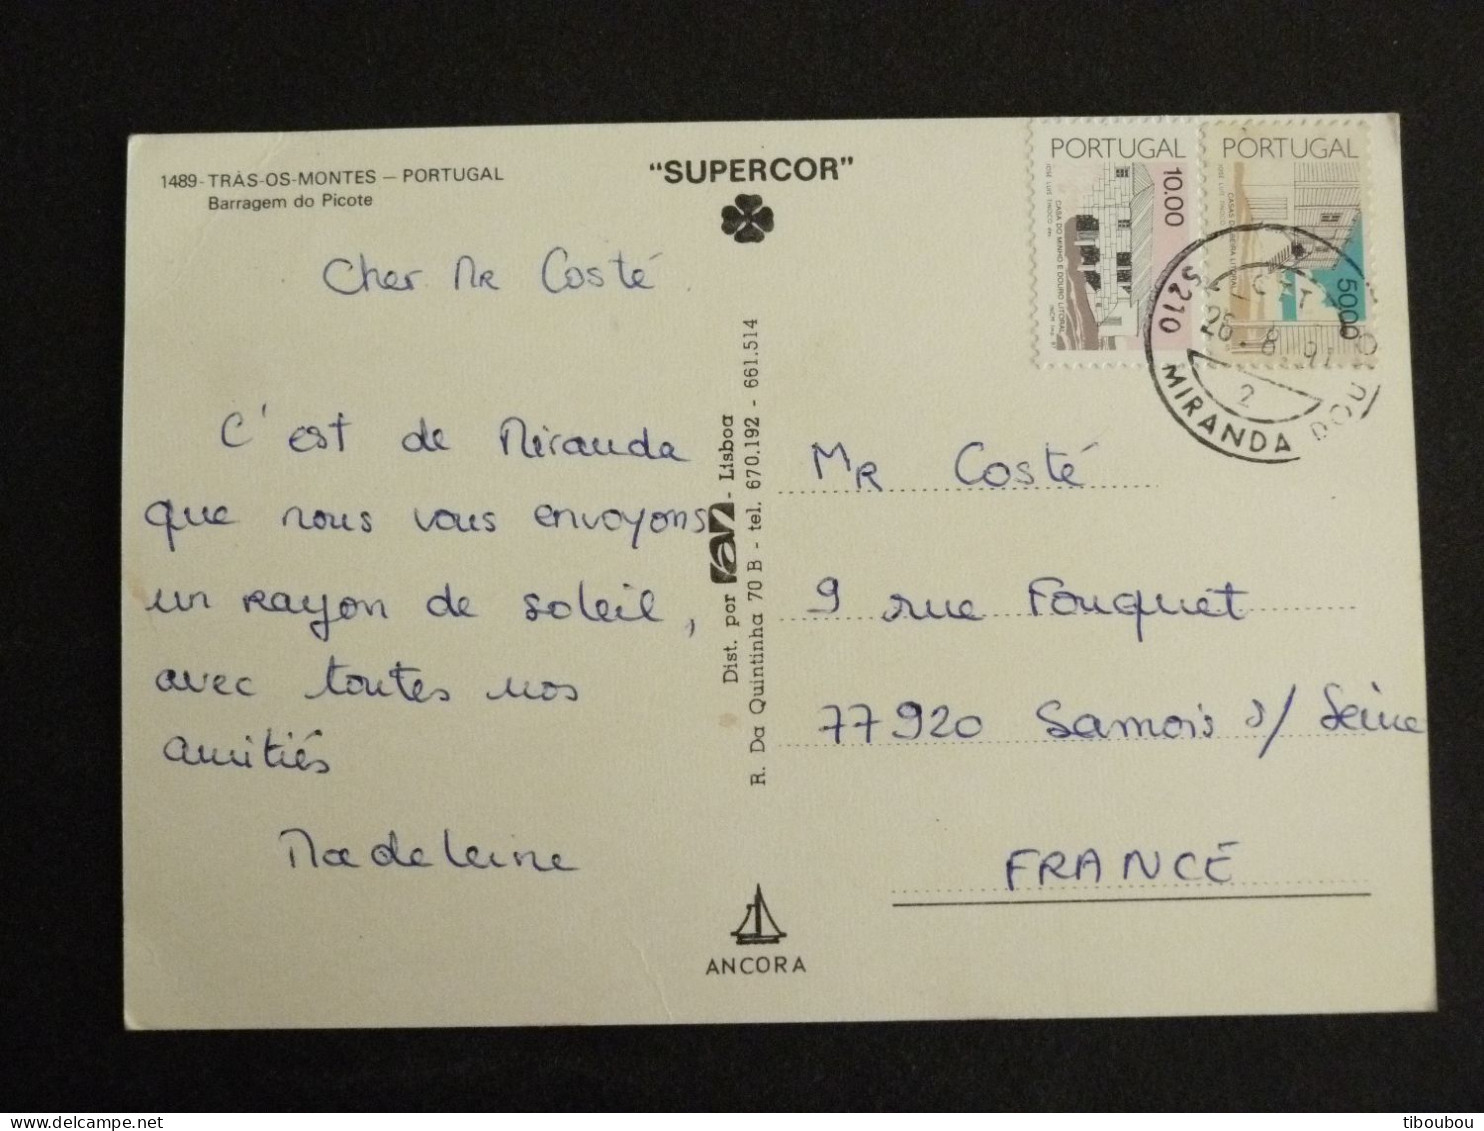 1489-TRÁS-OS-MONTES – PORTUGAL
Barragem do Picote
"SUPERCOR"
Cher MR Costé
C'est de Miranda
que nous vous envoyons
un rayon de soleil,
avec toutes nos
amitiés
Madeleine
Dist. por an - Lisboa
R. Da Quintinha 70 B - tel. 670.192 - 661.514
ANCORA
PORTUGAL
10.00
CASA DO MINHO E DOURO LITORAL
JOSÉ LUÍS TINOCO
PORTUGAL
50.00
JOSÉ LUÍS TINOCO
5210 MIRANDA DO
26.8.91
2
MR Costé
9 rue Fouquet
77920 Samois s/ Seine
FRANCE
tiboubou